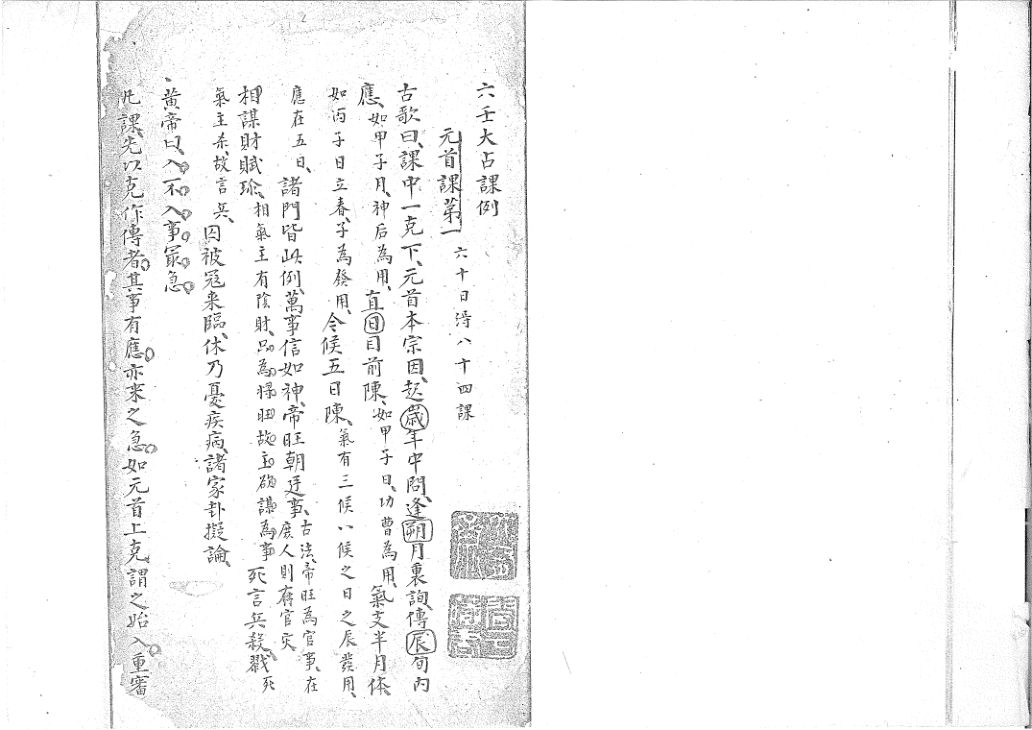 六壬大占課例
元首課第一 六十日得八十四課
古歌曰、課中一克下、元首本宗因、起歲年中問、逢朔月裏詢、傳辰旬內
應、如甲子月、神后為用、直日目前陳、如甲子日、功曹為用、氣支半月体、
如丙子日立春、子為發用、今候五日陳、氣有三候、八候之日之辰發用、
應在五日、諸門皆此例、萬事信如神、帝旺朝廷事、古法、帝旺為官事、在庶人則有官灾
相謀財賦瑜、相氣主有陰財、為將旺故主欲謀為事 死言兵殺戮、死
氣主杀、故言兵、囚被冦来臨、休乃憂疾病、諸家卦擬論、
黄帝曰、入不入事冣急
凡課先以克作傳者、其事有應亦来之急、如元首上克謂之始入重審